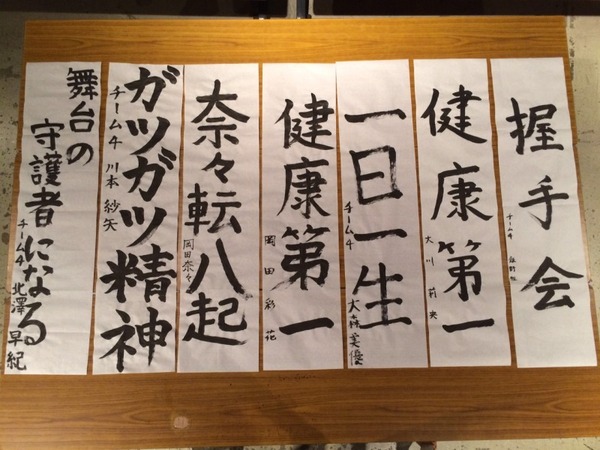 握手会
チーム4
健康第一
大川莉央
一日一生
チーム4
大森美優
健康第一
岡田彩花
奈々転八起
岡田奈々
ガツガツ精神
チーム4 川本紗矢
舞台の
守護者になる
チーム4 北澤早紀